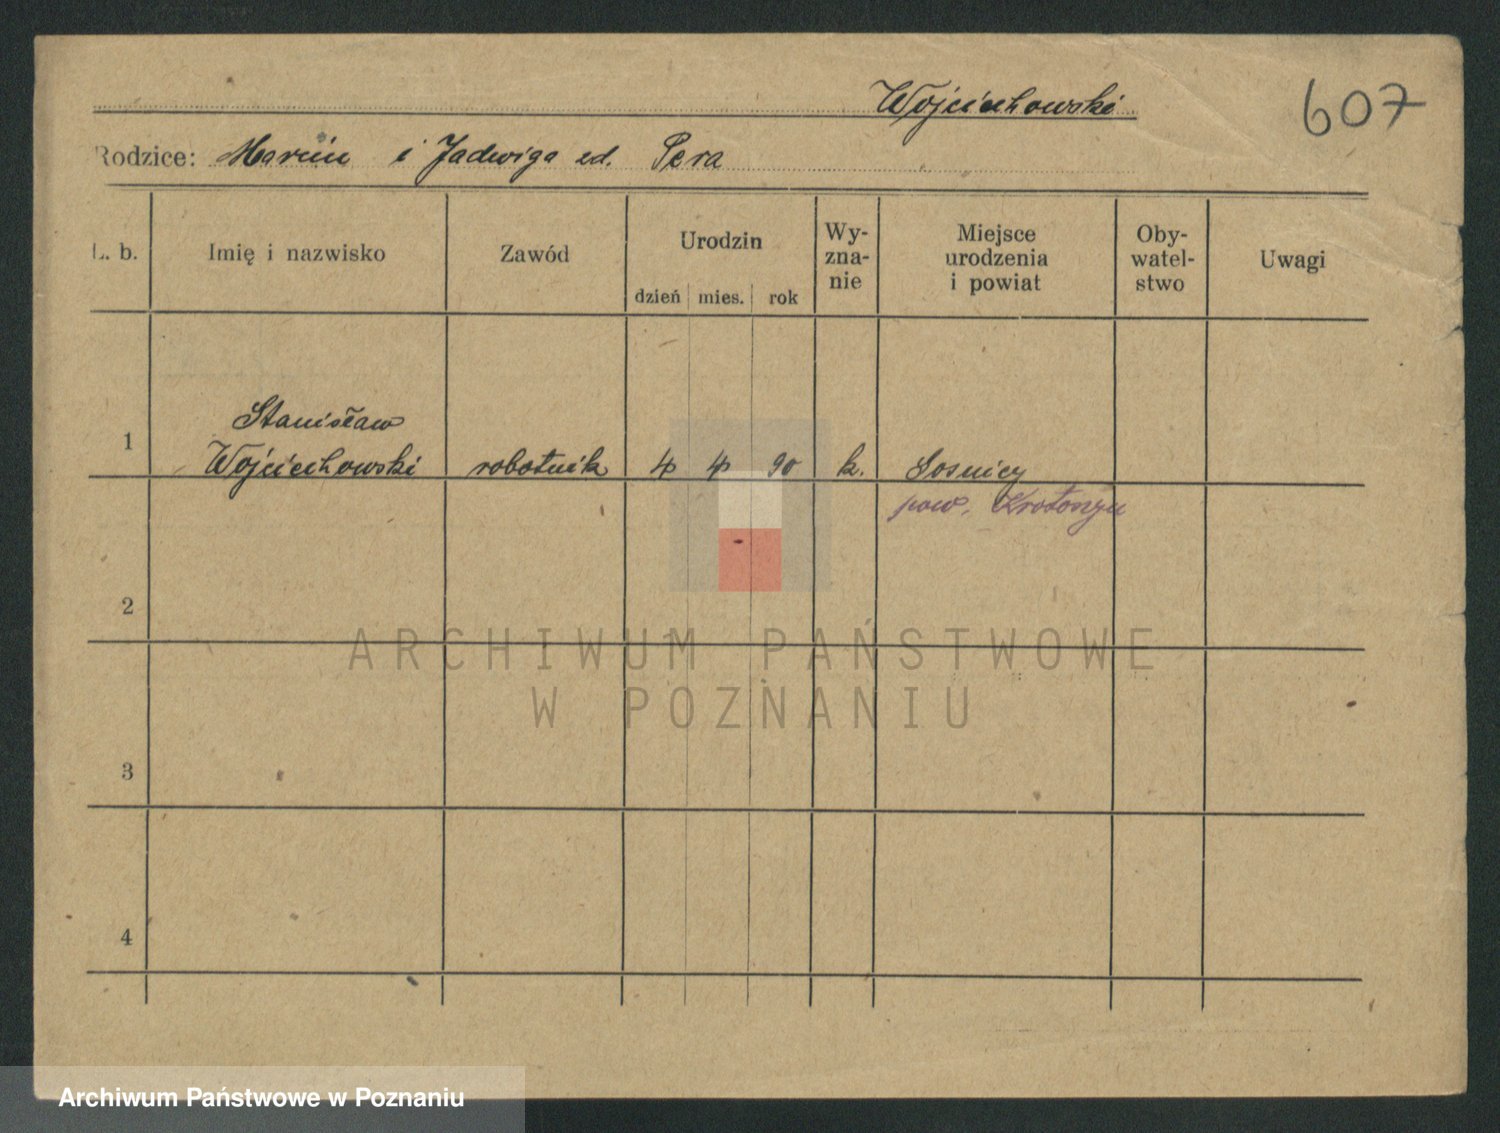 Wojciechowski
607
Rodzice: Marcin i Jadwiga zd. Pera
L. b.
Imię i nazwisko
Zawód
Urodzin
dzień mies. rok
Wy-
zna-
nie
Miejsce
urodzenia
i powiat
Oby-
watel-
stwo
Uwagi
1
Stanisław
Wojciechowski
robotnik
4 4 90
k.
Sośnicy
pow. Krotoszyn
2
3
4
ARCHIWUM PAŃSTWOWE
W POZNANIU
Archiwum Państwowe w Poznaniu